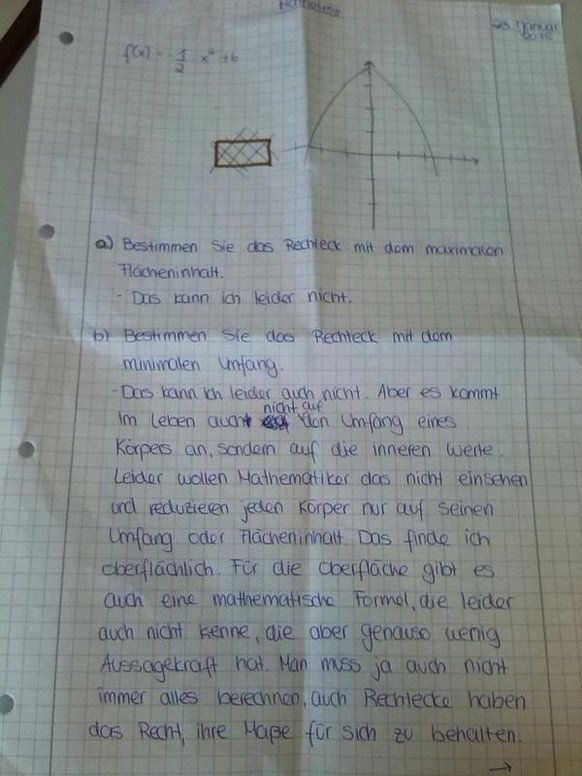 23. Januar
2015
f(x) = -1/2 x² + 6
a) Bestimmen Sie das Rechteck mit dem maximalen
Flächeninhalt.
- Das kann ich leider nicht.
b) Bestimmen Sie das Rechteck mit dem
minimalen Umfang.
- Das kann ich leider auch nicht. Aber es kommt
im Leben auch nicht auf den Umfang eines
Körpers an, sondern auf die inneren Werte.
Leider wollen Mathematiker das nicht einsehen
und reduzieren jeden Körper nur auf seinen
Umfang oder Flächeninhalt. Das finde ich
oberflächlich. Für die Oberfläche gibt es
auch eine mathematische Formel, die leider
auch nicht kenne, die aber genauso wenig
Aussagekraft hat. Man muss ja auch nicht
immer alles berechnen, auch Rechtecke haben
das Recht, ihre Maße für sich zu behalten.
→